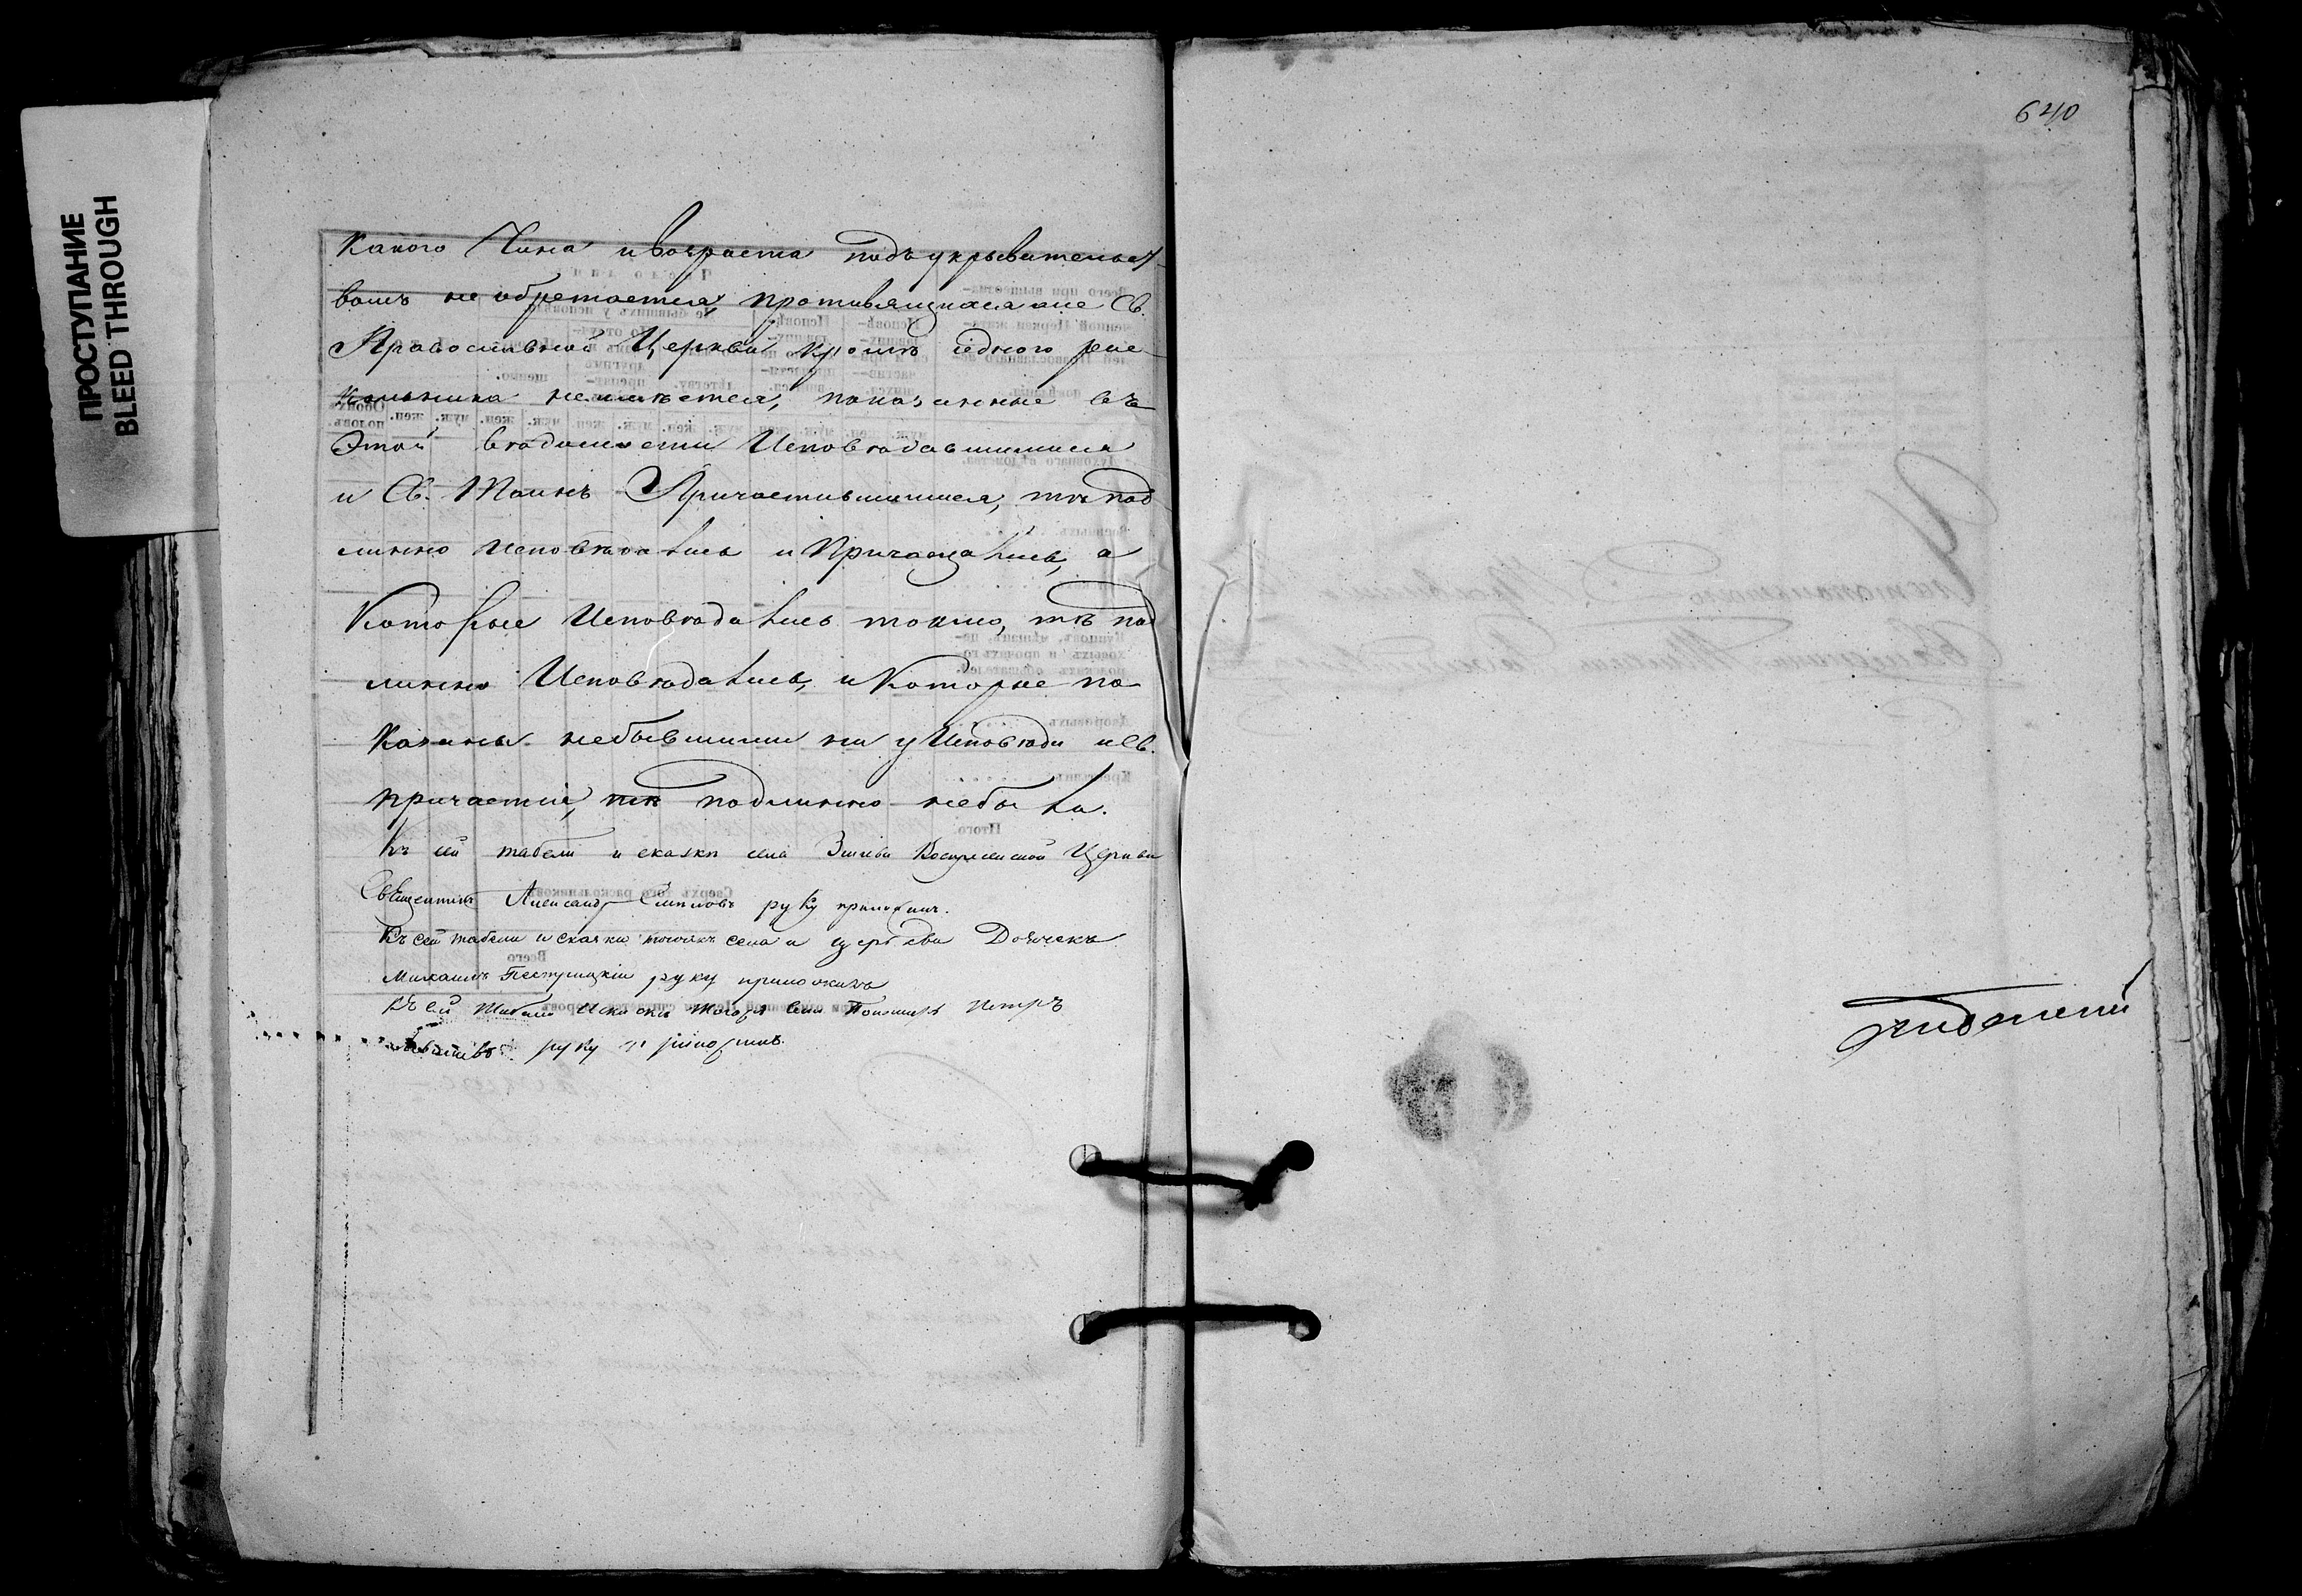 ПРОСТУПАНИЕ
BLEED THROUGH
640
Какого Чина и возраста подъ укрывательст-
вомъ не обретается, противящихся же Св.
Православной Церкви кромѣ едного рас-
кольника неимѣется, показанные въ
Этой вѣдомости Исповѣдавшимися
и Св. Таинъ Причастившимися, тѣ под
линно исповѣдались и Причащались, а
Которые Исповѣдались токмо, тѣ под
линно Исповѣдались, и Которые по
казаны небывшими ни у Исповѣди и Св.
причастія, тѣ подлинно небыли.
Къ сей табели и сказки села Воскресенской Церкви
Священникъ Александр руку приложилъ.
Къ сей табели и сказки тоежъ села и церкви Дьячекъ
Михаилъ руку приложилъ
Къ сей табели и сказки тогожъ села Пономарь Петръ
руку приложилъ